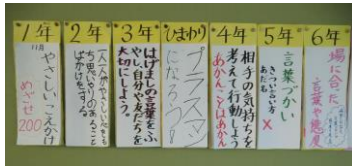 1年
11月
やさしいこえかけ
めざせ200
2年
一人一人がやさしい心をもち思いやりのあることばかけをする。
3年
はげましの言葉をふやし、自分や友だちを大切にしよう。
ひまわり
プラスマン
になろう!
4年
相手の気持ちを
考えて行動しよう
あかんことはあかん
5年
言葉づかい
きつい言い方
あだ名
×
6年
場に合った
言葉や態度